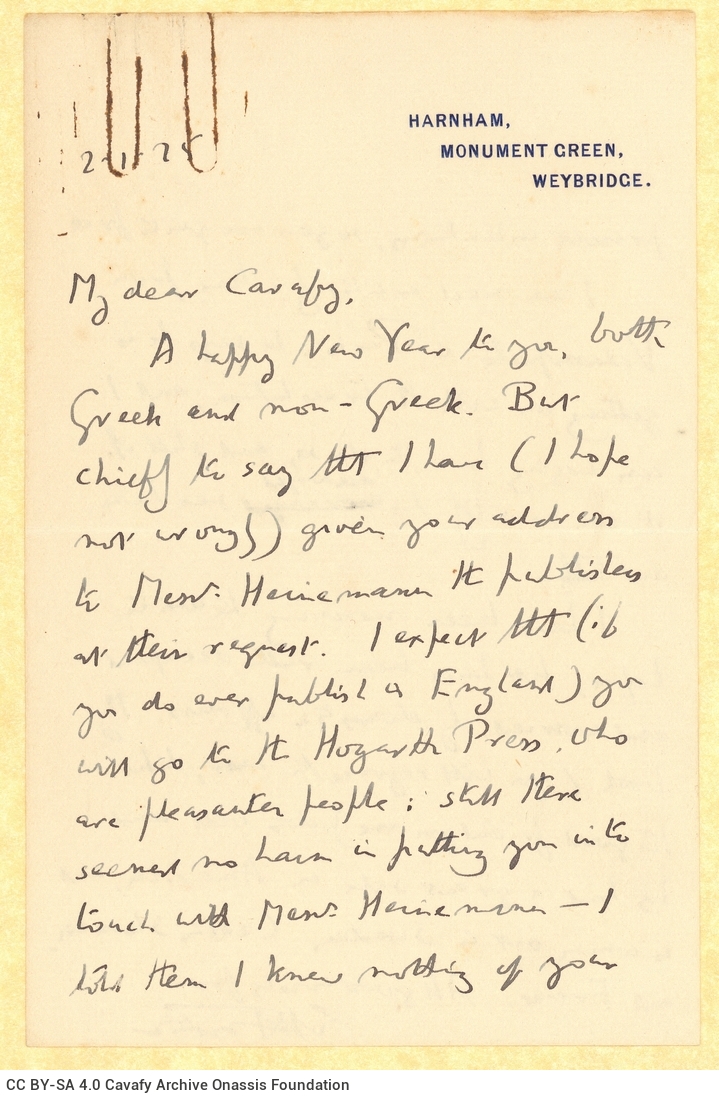 HARNHAM,
MONUMENT GREEN,
WEYBRIDGE.
2-1-25
My dear Cavafy,
A happy New Year to you, both
Greek and non-Greek. But
chiefly to say tht I have (I hope
not wrongly) given your address
to Messrs. Heinemann the publishers
at their request. I expect tht (if
you do ever publish in England) you
will go to the Hogarth Press, who
are pleasanter people; still there
seemed no harm in putting you in to
touch with Messrs. Heinemann — I
told them I knew nothing of your
CC BY-SA 4.0 Cavafy Archive Onassis Foundation